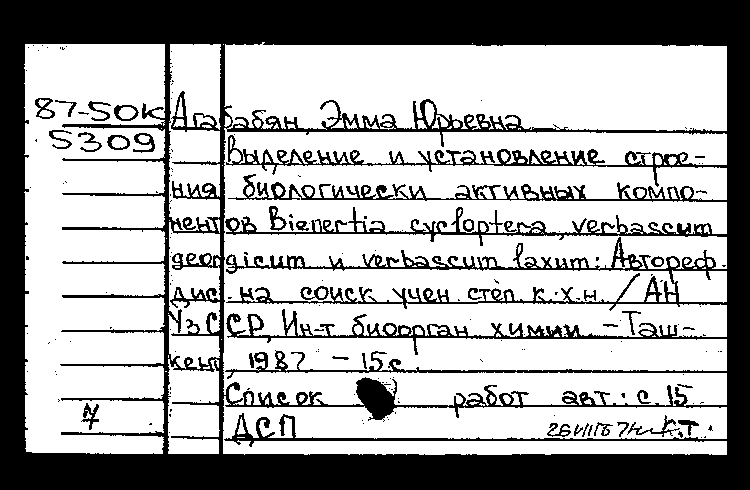 87-50К Агабабян, Эмма Юрьевна
5309
Выделение и установление строе-
ния биологически активных компо-
нентов Bienertia cycloptera, verbascum
georgicum и verbascum laxum: Автореф.
дис. на соиск. учен. степ. к.х.н. / АН
УзССР, Ин-т биоорган. химии. - Таш-
кент, 1987. - 15 с.
Список работ авт.: с. 15
7 ДСП К.Т.